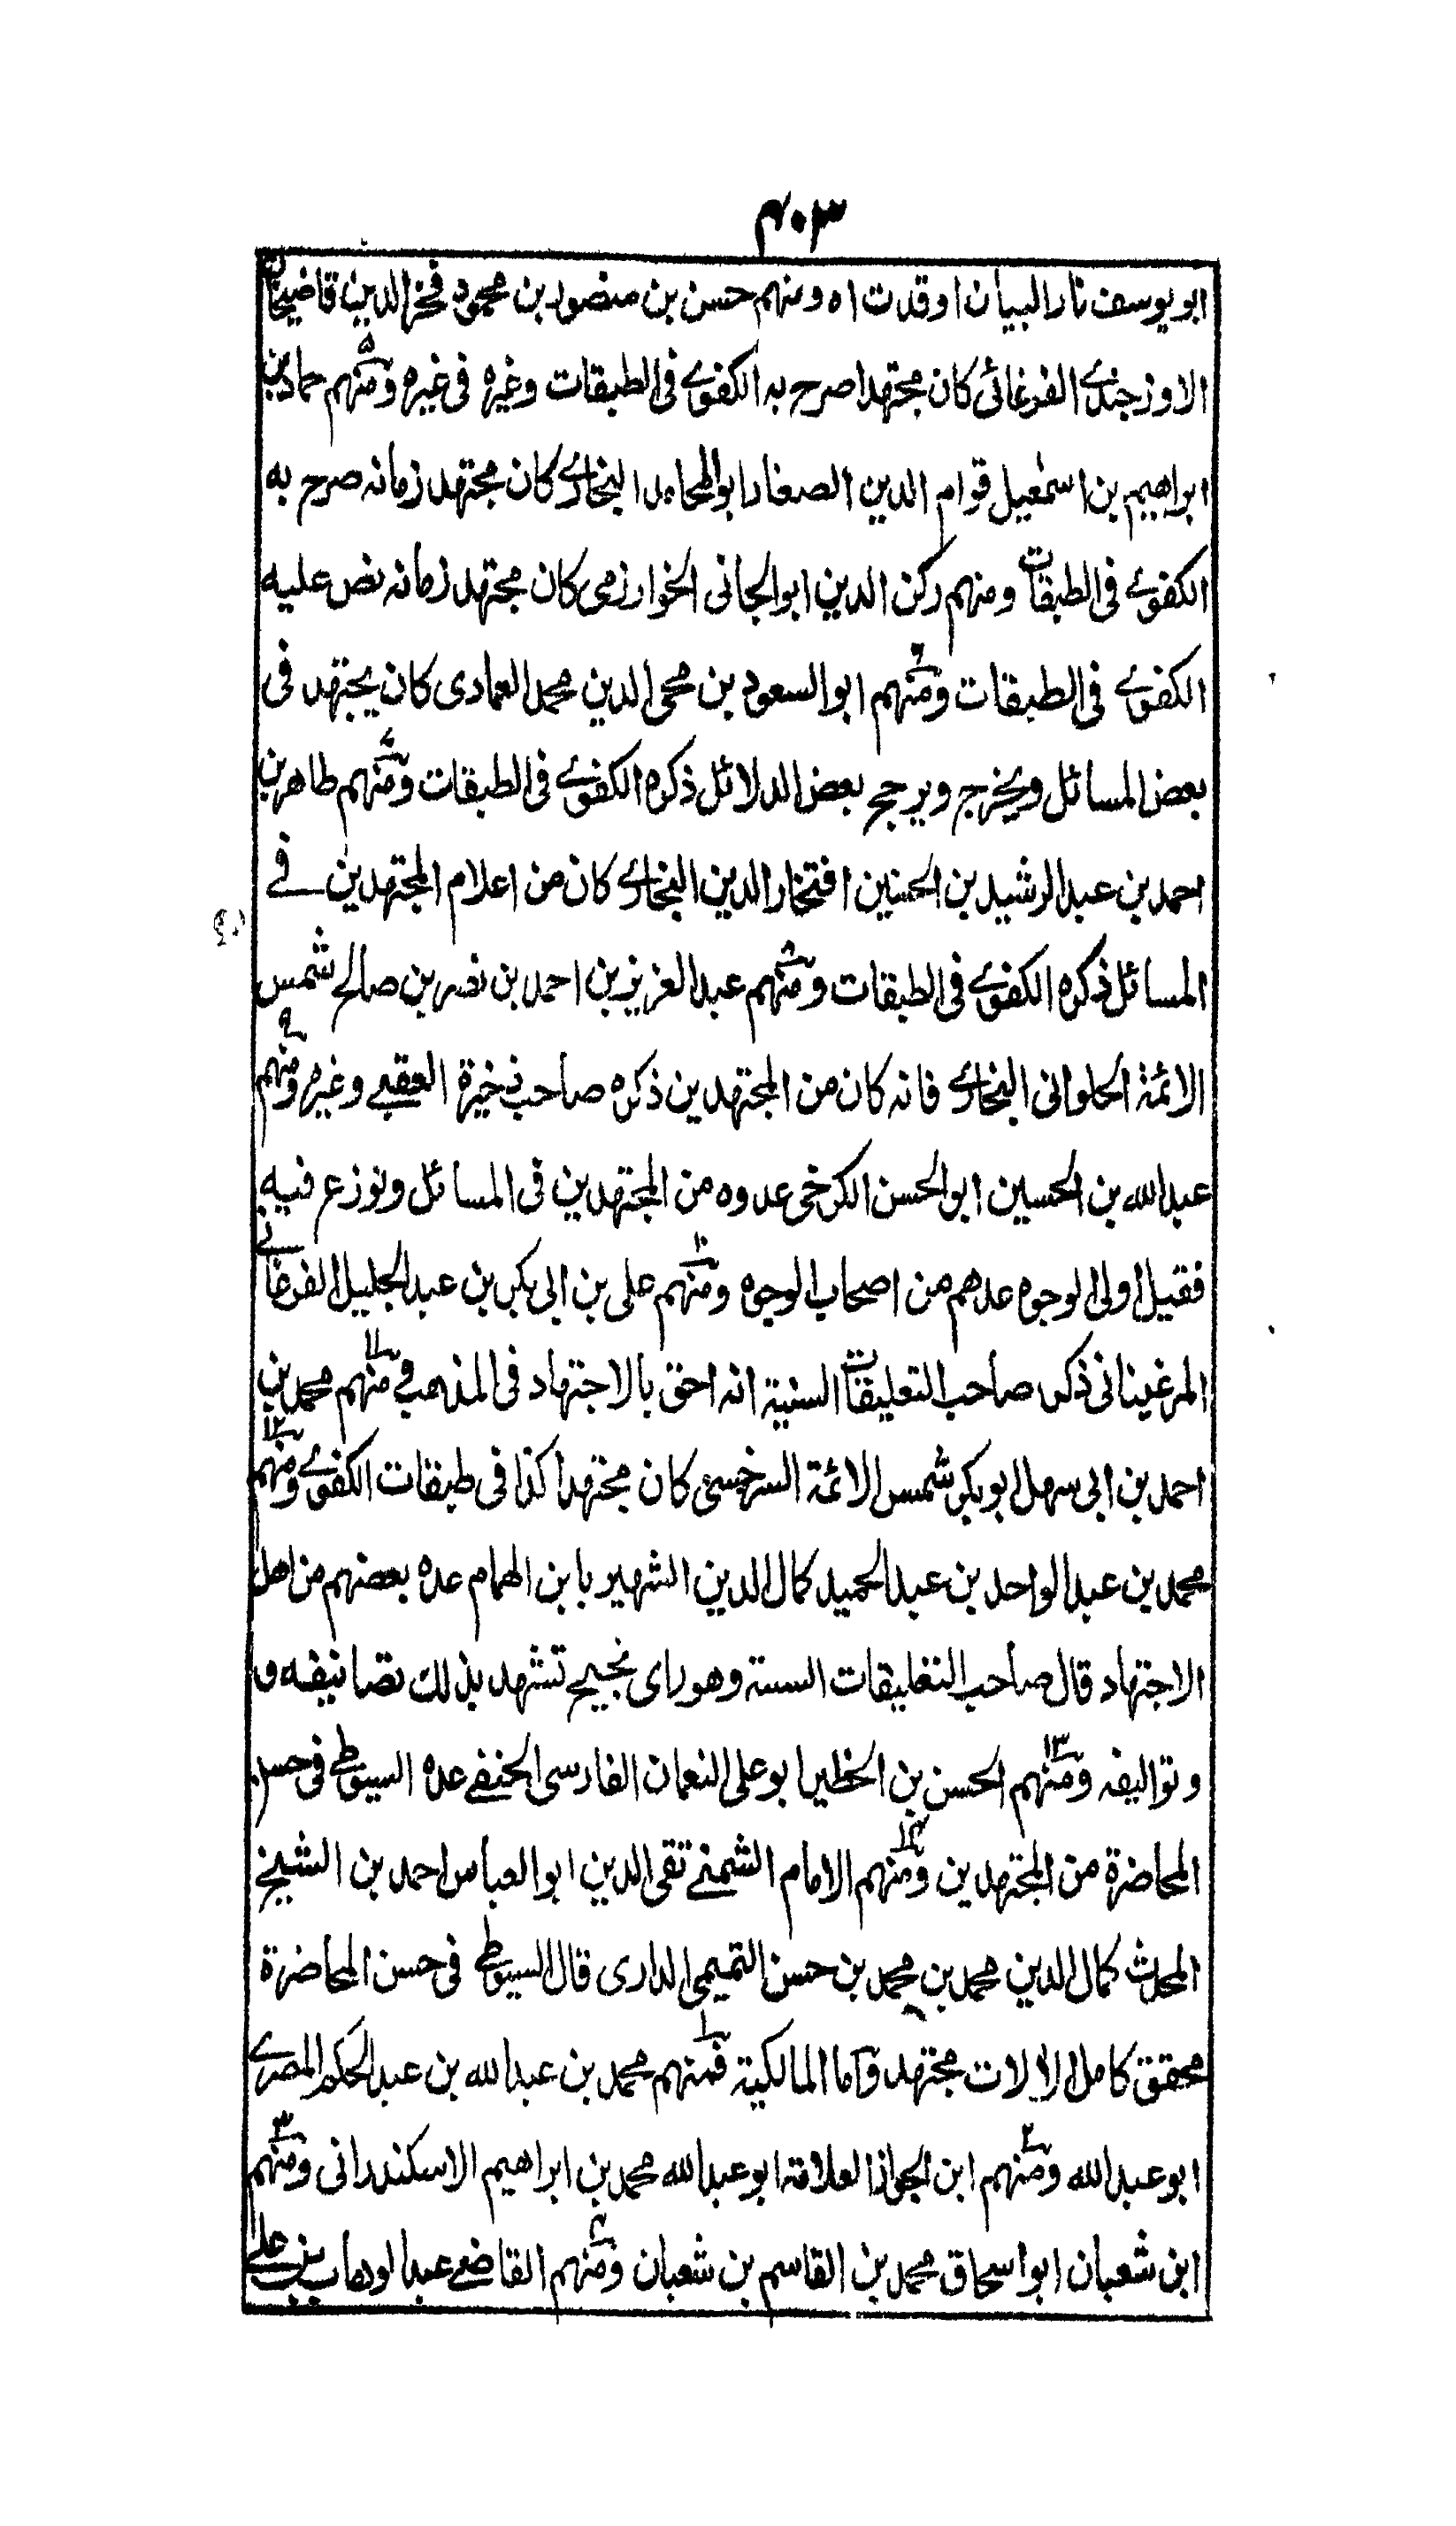 ۴۰۳
ابو یوسف نار البیان اوقدت اه ومنهم حسن بن منصور بن محمود فخر الدین قاضیخان
الاوزجندے الفرغانی کان مجتهدا صرح به الکفوے فی الطبقات وغیره فی غیره ومنهم ۵ حماد بن
ابراهیم بن اسمعیل قوام الدین الصفار ابو المحامد البخارے کان مجتهد زمانه صرح به
الکفوے فی الطبقات ومنهم رکن الدین ابو الجانی الخوارزمی کان مجتهد زمانه نص علیه
الکفوے فی الطبقات ومنهم ۶ ابو السعود بن محی الدین محمد العمادی کان یجتهد فی
بعض المسائل ویخرج ویرجح بعض الدلائل ذکره الکفوے فی الطبقات ومنهم ۷ طاهر بن
احمد بن عبد الرشید بن الحسین افتخار الدین البخارے کان من اعلام المجتهدین فے
المسائل ذکره الکفوے فی الطبقات ومنهم ۸ عبد العزیز بن احمد بن نصر بن صالح شمس
الائمة الحلوانی البخارے فانه کان من المجتهدین ذکره صاحب ذخیرة العقبے وغیره ومنهم ۹
عبد الله بن الحسین ابو الحسن الکرخی عدوه من المجتهدین فی المسائل ونوزع فیه
فقیل اولی الوجوه عدهم من اصحاب الوجوه ومنهم ۱۰ علی بن ابی بکر بن عبد الجلیل الفرغانے
المرغینانی ذکر صاحب التعلیقات السنیة انه احق بالاجتهاد فی المذهب ومنهم ۱۱ محمد بن
احمد بن ابی سهل ابو بکر شمس الائمة السرخسی کان مجتهدا کذا فی طبقات الکفوے ومنهم ۱۲
محمد بن عبد الواحد بن عبد الحمید کمال الدین الشهیر بابن الهمام عده بعضهم من اهل
الاجتهاد قال صاحب التعلیقات السنیة وهو رای نجیح تشهد بذلک تصانیفه و
وتوالیفه ومنهم ۱۳ الحسن بن الخطیر ابو علی النعمان الفارسی الحنفے عده السیوطے فی حسن
المحاضرة من المجتهدین ومنهم ۱۴ الامام الشمنے تقی الدین ابو العباس احمد بن الشیخ
المحدث کمال الدین محمد بن محمد بن حسن التمیمی الداری قال السیوطے فی حسن المحاضرة
محقق کامل الالات مجتهد واما المالکیة فمنهم ۱ محمد بن عبد الله بن عبد الحکم المصرے
ابو عبد الله ومنهم ۲ ابن الجواز العلامة ابو عبد الله محمد بن ابراهیم الاسکندرانی ومنهم ۳
ابن شعبان ابو اسحاق محمد بن القاسم بن شعبان ومنهم ۴ القاضے عبد الوهاب بن علے